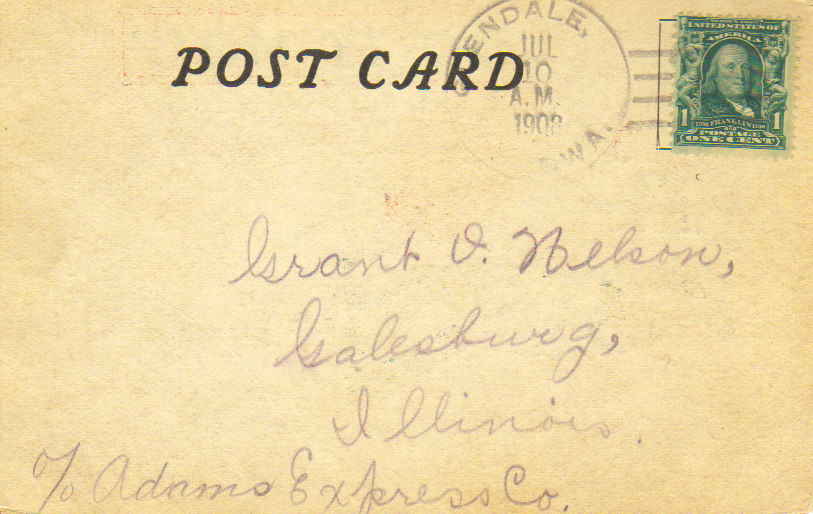 POST CARD
GLENDALE,
JUL
10
A.M.
1908
IOWA.
UNITED STATES OF
AMERICA
1 FRANKLIN 1
POSTAGE
ONE CENT
Grant V. Nelson,
Galesburg,
Illinois.
c/o Adams Express Co.